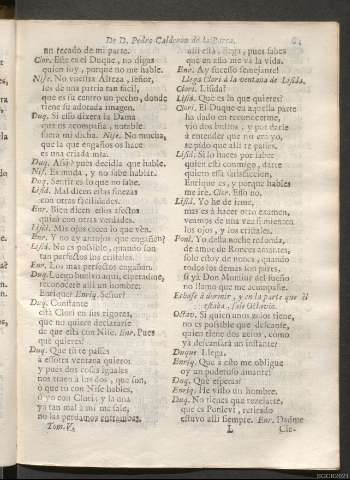 De D. Pedro Calderon de la Barca.
un recado de mi parte.
Clor. Este es el Duque, no digas
quien soy, porque no me hable.
Nise. No vuestra Alteza, señor,
sea de una patria tan facil,
que es su centro un pecho, donde
tiene su adorada imagen.
Duq. Si esso dixera la Dama
que os acompaña, notable
fuera mi dicha. Nise. No mucha,
que la que engañosos hace
es una criada mia.
Duq. Assi? pues decidla que hable.
Nis. Es muda, y no sabe hablar.
Duq. Sentir es lo que no sabe.
Lisid. Mal dicen estas finezas
con otras facilidades.
Enr. Bien dicen estos afectos
quizá con otras verdades.
Lisid. Mis ojos creen lo que ven.
Enr. Y no ay antojos que engañan?
Lisid. No es possible, quando son
tan perfectos los cristales.
Enr. Los mas perfectos engañan.
Duq. Luego buelvo aqui, esperadme,
reconoceré allí un hombre:
Enrique? Enriq. Señor?
Duq. Constante
está Clori en sus rigores,
que no quiere declararse
de que está con Nise. Enr. Pues
qué quieres?
Duq. Que tú te passes
á essotra ventana quiero:
y pues dos cosas iguales
nos traen á los dos, que son,
ó que tú con Nise hables,
ó yo con Clori; y la una
ya tan mal á mi me sale,
no las perdamos entrambas,
Tom. V.
allí está, llega, pues sabes
que en ello me vá la vida.
Enr. Ay sucesso semejante!
Llega Clori á la ventana de Lisida.
Clori. Lisida?
Lisid. Qué es lo que quieres?
Clori. El Duque en aquella parte
ha dado en reconocerme,
vió dos bultos, y por darle
á entender que no era yo,
te pido que allí te passes.
Lisid. Si lo haces por saber
quien está conmigo, darte
quiero essa satisfaccion,
Enrique es, y porque hables
me iré. Clor. Esso no.
Lisid. Yo he de irme,
mas es á hacer otro examen,
veamos de una vez si mienten
los ojos, y los cristales.
Ponl. Yo desta noche redonda,
de amor de Roncesvantes,
solo estoy de nones, quando
todos los demás son pares,
si yá Don Monsiur del sueño
no llamo que me acompañe.
Echase á dormir, y en la parte que él
estaba, sale Octavio.
Octav. Si quien unos zelos tiene,
no es possible que descanse,
quien tiene dos zelos, como
yá descansará un instante?
Duque. Llega.
Enriq. Que á esto me obligue
oy un poderoso amante!
Duq. Qué esperas?
Enriq. He visto un hombre.
Duq. No tienes que rezelarte,
que es Ponleví, retirado
estuvo allí siempre. Enr. Dadme
L Cie-